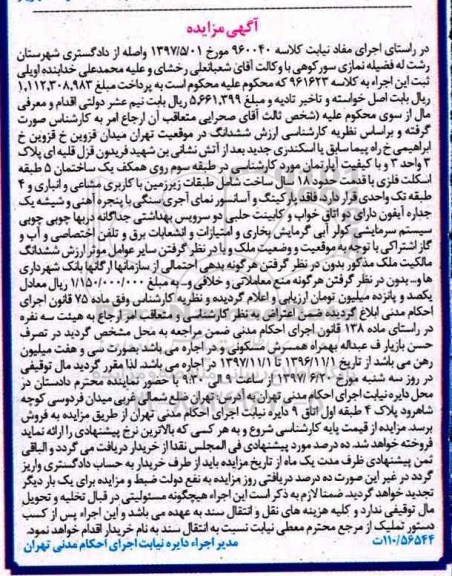 آگهی مزایده
در راستای اجرای مفاد نیابت کلاسه ۹۶۰۰۴۰ مورخ ۱۳۹۷/۵/۰۱ واصله از دادگستری شهرستان
رشت له فضیله نمازی سورکوهی با وکالت آقای شعبانعلی رخشای و علیه محمدعلی خدابنده اویلی
ثبت این اجراء به کلاسه ۹۶۱۶۲۳ که محکوم علیه محکوم است به پرداخت مبلغ ۱,۱۱۲,۳۰۸,۹۸۳
ریال بابت اصل خواسته و تاخیر تادیه و مبلغ ۵,۶۶۱,۳۹۹ ریال بابت نیم عشر دولتی اقدام و معرفی
مال از سوی محکوم علیه (شخص ثالث آقای صحرایی متعاقب آن ارجاع امر به کارشناس صورت
گرفته و براساس نظریه کارشناسی ارزش ششدانگ در موقعیت تهران میدان قزوین خ قزوین خ
ابراهیمی خ راه پیما سابق یا اسکندری جدید بعد از آتش نشانی بن شهید فریدون قزل قلیه ای پلاک
۳ واحد ۳ و با کیفیت آپارتمان مورد کارشناسی در طبقه سوم روی همکف یک ساختمان ۵ طبقه
اسکلت فلزی با قدمت حدود ۱۸ سال ساخت شامل طبقات زیرزمین با کاربری مشاعی و انباری و ۴
طبقه تک واحدی قرار دارد، فاقد پارکینگ و آسانسور نمای آجری سنگی با پنجره آهنی و شیشه یک
جداره آیفون دارای دو اتاق خواب و کابینت حلبی دو سرویس بهداشتی جداگانه دربها چوبی چوبی
سیستم سرمایشی کولر آبی گرمایش بخاری و امتیازات و انشعابات برق و تلفن اختصاصی و آب و
گاز اشتراکی با توجه به موقعیت و وضعیت ملک و با در نظر گرفتن سایر عوامل موثر ارزش ششدانگ
مالکیت ملک مذکور بدون در نظر گرفتن هر گونه بدهی احتمالی از سازمانها ارگانها بانک شهرداری
ها و... بدون در نظر گرفتن هر گونه منع معاملاتی و خلافی و... به مبلغ ۱/۱۵۰/۰۰۰/۰۰۰ ریال معادل
یکصد و پانزده میلیون تومان ارزیابی و اعلام گردیده و نظریه کارشناسی وفق ماده ۷۵ قانون اجرای
احکام مدنی ابلاغ گردیده ضمن اعتراض به نظر کارشناسی و متعاقب امر ارجاع به هیئت سه نفره
در راستای ماده ۱۳۸ قانون اجرای احکام مدنی ضمن مراجعه به محل مشخص گردید در تصرف
حسن بازیار ف عبداله بهمراه همسرش مسکونی و در اجاره می باشد بصورت سی و هفت میلیون
رهن می باشد از تاریخ ۱۳۹۶/۱۱/۱ تا ۱۳۹۷/۱۱/۱ در اجاره می باشد. لذا مقرر گردید مال توقیفی
در روز سه شنبه مورخ ۱۳۹۷/۶/۲۰ از ساعت ۹ الی ۹:۳۰ با حضور نماینده محترم دادستان در
محل دایره نیابت اجرای احکام مدنی تهران به آدرس تهران ضلع شمالی غربی میدان فردوسی کوچه
شاهرود پلاک ۴ طبقه اول اتاق ۹ دایره نیابت اجرای احکام مدنی تهران از طریق مزایده به فروش
برسد. مزایده از قیمت پایه کارشناسی شروع و به هر کسی که بالاترین نرخ پیشنهادی را ارائه نماید
فروخته خواهد شد. ده درصد مورد پیشنهادی فی المجلس نقدا از خریدار دریافت می گردد و الباقی
ثمن پیشنهادی ظرف مدت یک ماه از تاریخ مزایده باید از طرف خریدار به حساب دادگستری واریز
گردد در غیر این صورت ده درصد دریافتی روز مزایده به نفع دولت ضبط و مزایده برای یک بار دیگر
تجدید خواهد گردید. ضمنا لازم به ذکر است این اجراء هیچگونه مسئولیتی در قبال تخلیه و تحویل
مال توقیفی ندارد و کلیه هزینه های نقل و انتقال سند به عهده می باشد و این اجراء پس از کسب
دستور تملیک از مرجع محترم معطی نیابت نسبت به انتقال سند به نام خریدار اقدام خواهد نمود.
۱۱۰/۵۶۵۴۴ت مدیر اجراء دایره نیابت اجرای احکام مدنی تهران